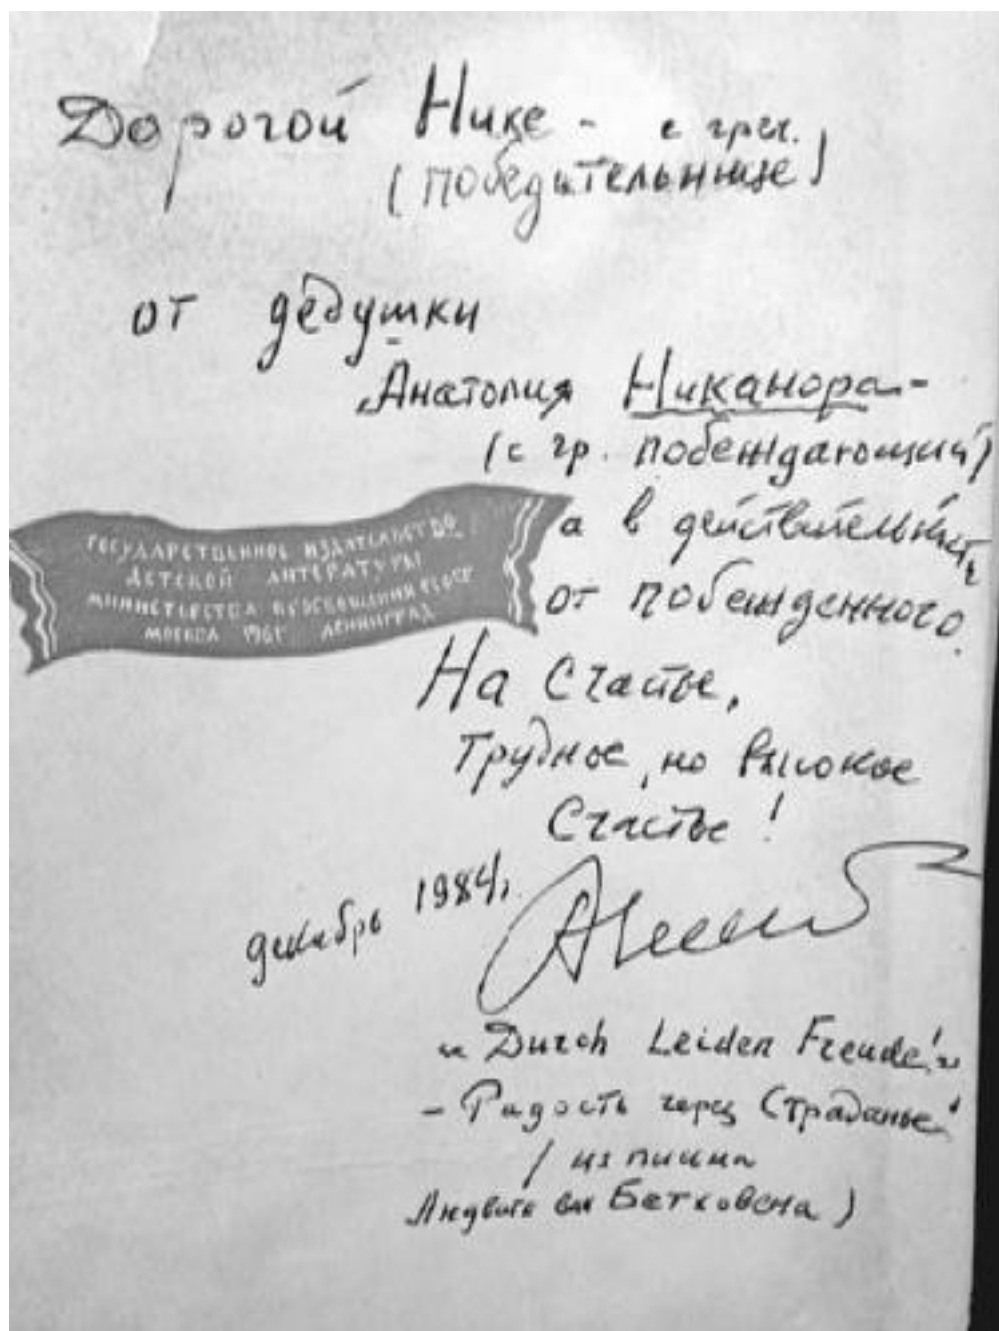 Дорогой Нике - с греч.
(победительнице)
от дедушки
Анатолия Никанора -
(с гр. побеждающий)
а в действительности
от побежденного.
ГОСУДАРСТВЕННОЕ ИЗДАТЕЛЬСТВО
ДЕТСКОЙ ЛИТЕРАТУРЫ
МИНИСТЕРСТВА ПРОСВЕЩЕНИЯ РСФСР
МОСКВА 1961 ЛЕНИНГРАД
На Счастье,
Трудное, но высокое
Счастье!
декабрь 1984г.
"Durch Leiden Freude!"
- Радость через Страданье!
/ из письма
Людвига ван Бетховена)